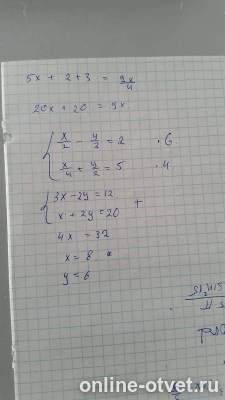 5x + 2 + 3 = 9x/4
20x + 20 = 9x
{ x/2 - y/3 = 2 · 6
x/4 + y/2 = 5 · 4
{ 3x - 2y = 12 +
x + 2y = 20
4x = 32
x = 8
y = 6
online-otvet.ru